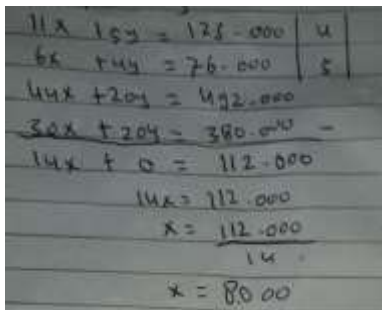 11x + 5y = 123.000 | 4 |
6x + 4y = 76.000 | 5 |
44x + 20y = 492.000
30x + 20y = 380.000 -
14x + 0 = 112.000
14x = 112.000
x = 112.000
14
x = 8000